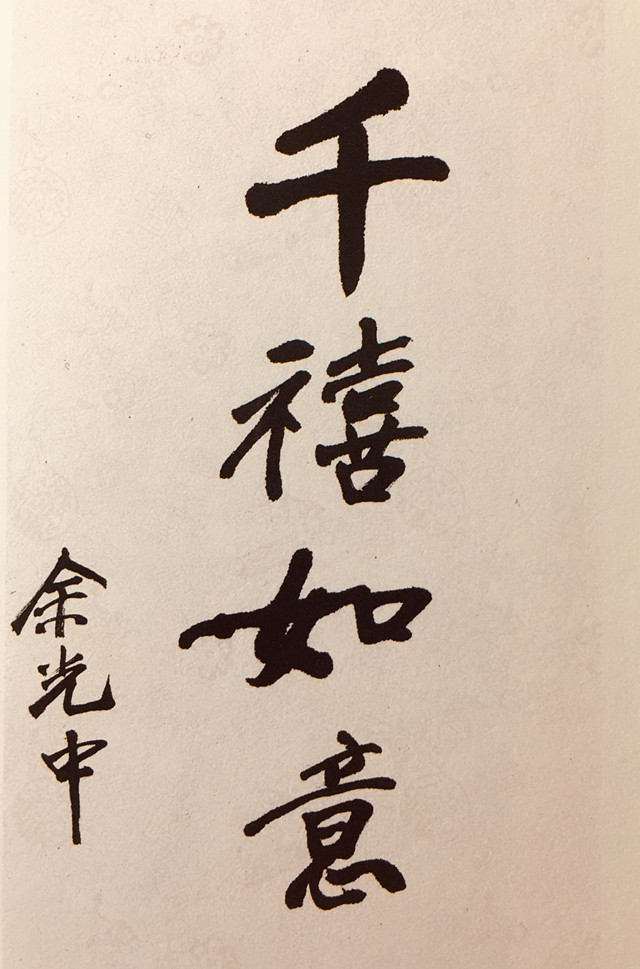 千禧如意
余光中